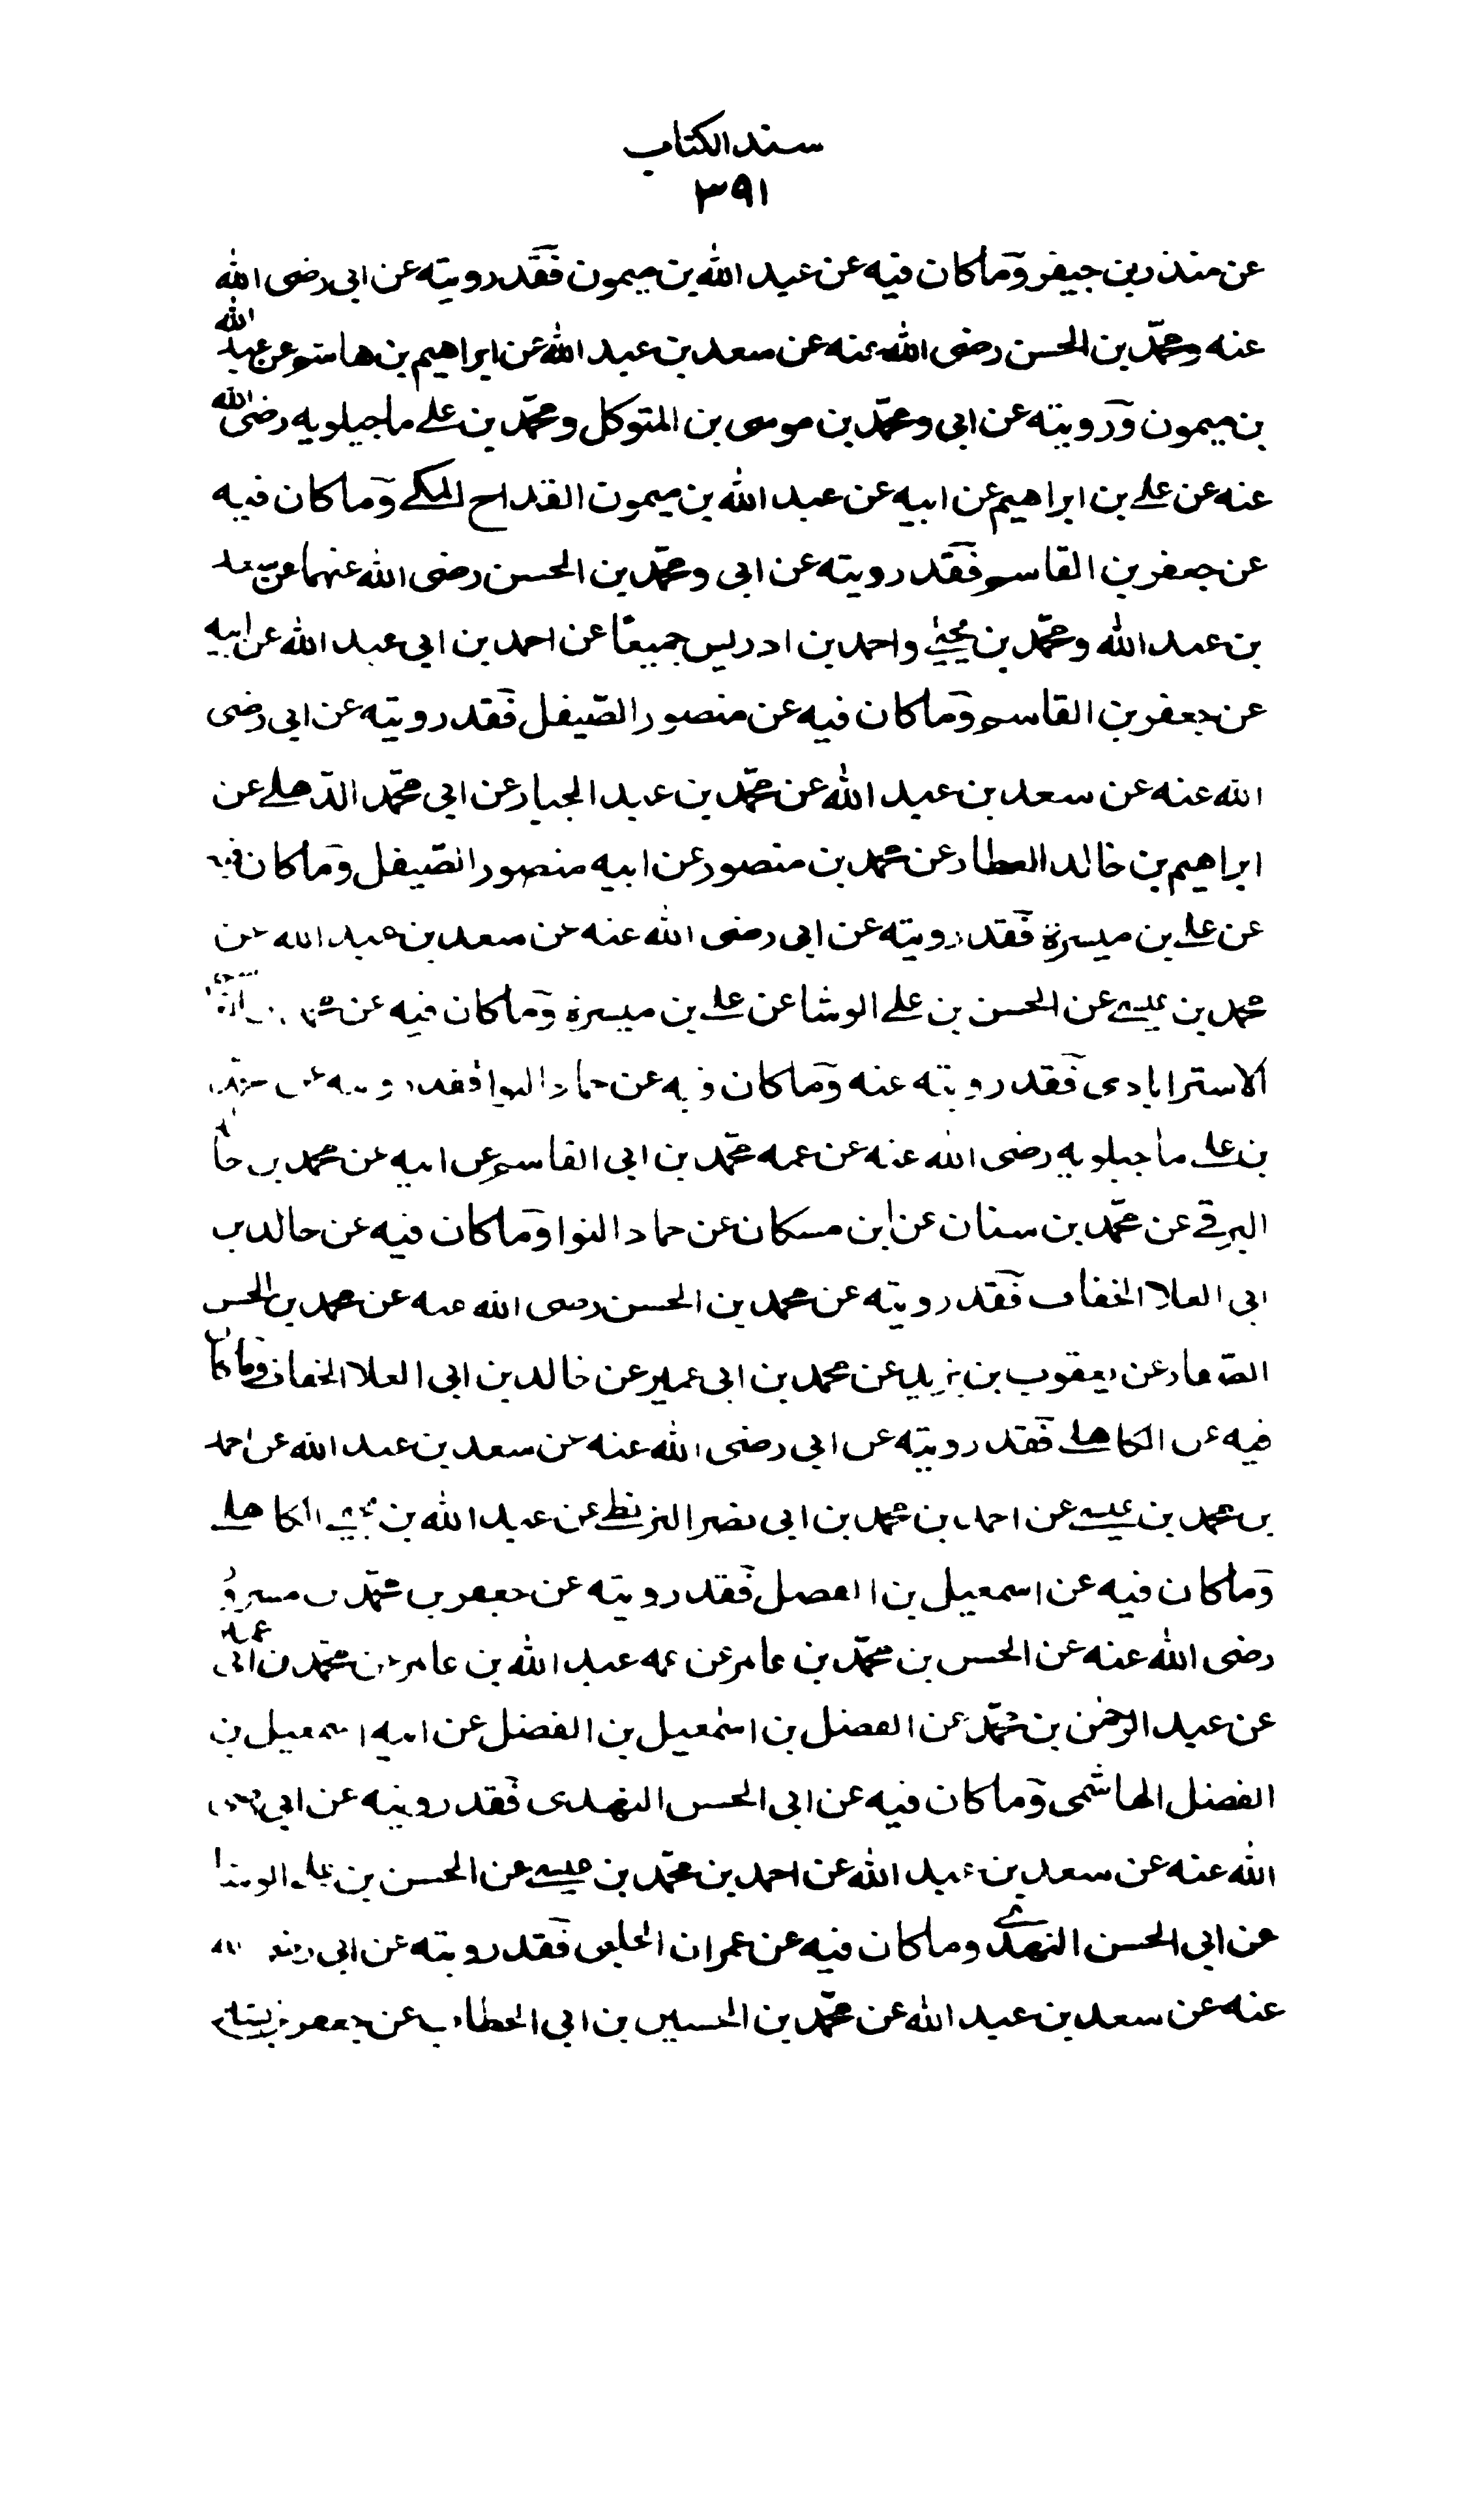 سند الكتاب
٣٩١
عن منذر بن جيفر وما كان فيه عن عبد الله بن ميمون فقد رويته عن ابى رضى الله
عنه ومحمّد بن الحسن رضى الله عنه عن سعد بن عبد الله عن ابراهيم بن هاشم عن عبد الله
بن ميمون ورويته عن ابى ومحمّد بن موسى بن المتوكل ومحمّد بن على ماجيلويه رضى الله
عنه عن على بن ابراهيم عن ابيه عن عبد الله بن ميمون القداح المكى وما كان فيه
عن جعفر بن القاسم فقد رويته عن ابى ومحمّد بن الحسن رضى الله عنهما عن سعد
بن عبد الله ومحمّد بن يحيى واحمد بن ادريس جميعًا عن احمد بن ابى عبد الله عن ابيه
عن جعفر بن القاسم وما كان فيه عن منصور الصّيقل فقد رويته عن ابى رضى
الله عنه عن سعد بن عبد الله عن محمّد بن عبد الجبار عن ابى محمّد الذّهلى عن
ابراهيم بن خالد العطار عن محمد بن منصور عن ابيه منصور الصّيقل وما كان فيه
عن على بن ميسرة فقد رويته عن ابى رضى الله عنه عن سعد بن عبد الله عن
محمد بن عيسى عن الحسن بن على الوشا عن على بن ميسرة وما كان فيه عن محمد بن القاسم
الاسترابادى فقد رويته عنه وما كان فيه عن حماد النوا فقد رويته عن محمّد
بن على ماجيلويه رضى الله عنه عن عمه محمّد بن ابى القاسم عن ابيه عن محمد بن خالد
البرقى عن محمّد بن سنان عن ابن مسكان عن حماد النوا وما كان فيه عن خالد بن
ابى العلا الخفاف فقد رويته عن محمد بن الحسن رضى الله عنه عن محمد بن الحسن
الصّفار عن يعقوب بن يزيد عن محمد بن ابى عمير عن خالد بن ابى العلا الخفاف وما كان
فيه عن الكاهلى فقد رويته عن ابى رضى الله عنه عن سعد بن عبد الله عن احمد
بن محمد بن عيسى عن احمد بن محمد بن ابى نصر البزنطى عن عبد الله بن يحيى الكاهلى
وما كان فيه عن اسمعيل بن الفضل فقد رويته عن جعفر بن محمّد بن مسرور
رضى الله عنه عن الحسن بن محمّد بن عامر عن عمه عبد الله بن عامر عن محمّد بن ابى عمير
عن عبد الرحمٰن بن محمّد عن الفضل بن اسمٰعيل بن الفضل عن ابيه اسمعيل بن
الفضل الهاشمى وما كان فيه عن ابى الحسن النهدى فقد رويته عن ابى رضى
الله عنه عن سعد بن عبد الله عن احمد بن محمّد بن عيسى عن الحسن بن على الوشا
عن ابى الحسن النهدى وما كان فيه عن عمران الحلبى فقد رويته عن ابى رضى الله
عنه عن سعد بن عبد الله عن محمّد بن الحسين بن ابى الخطاب عن جعفر بن بشير